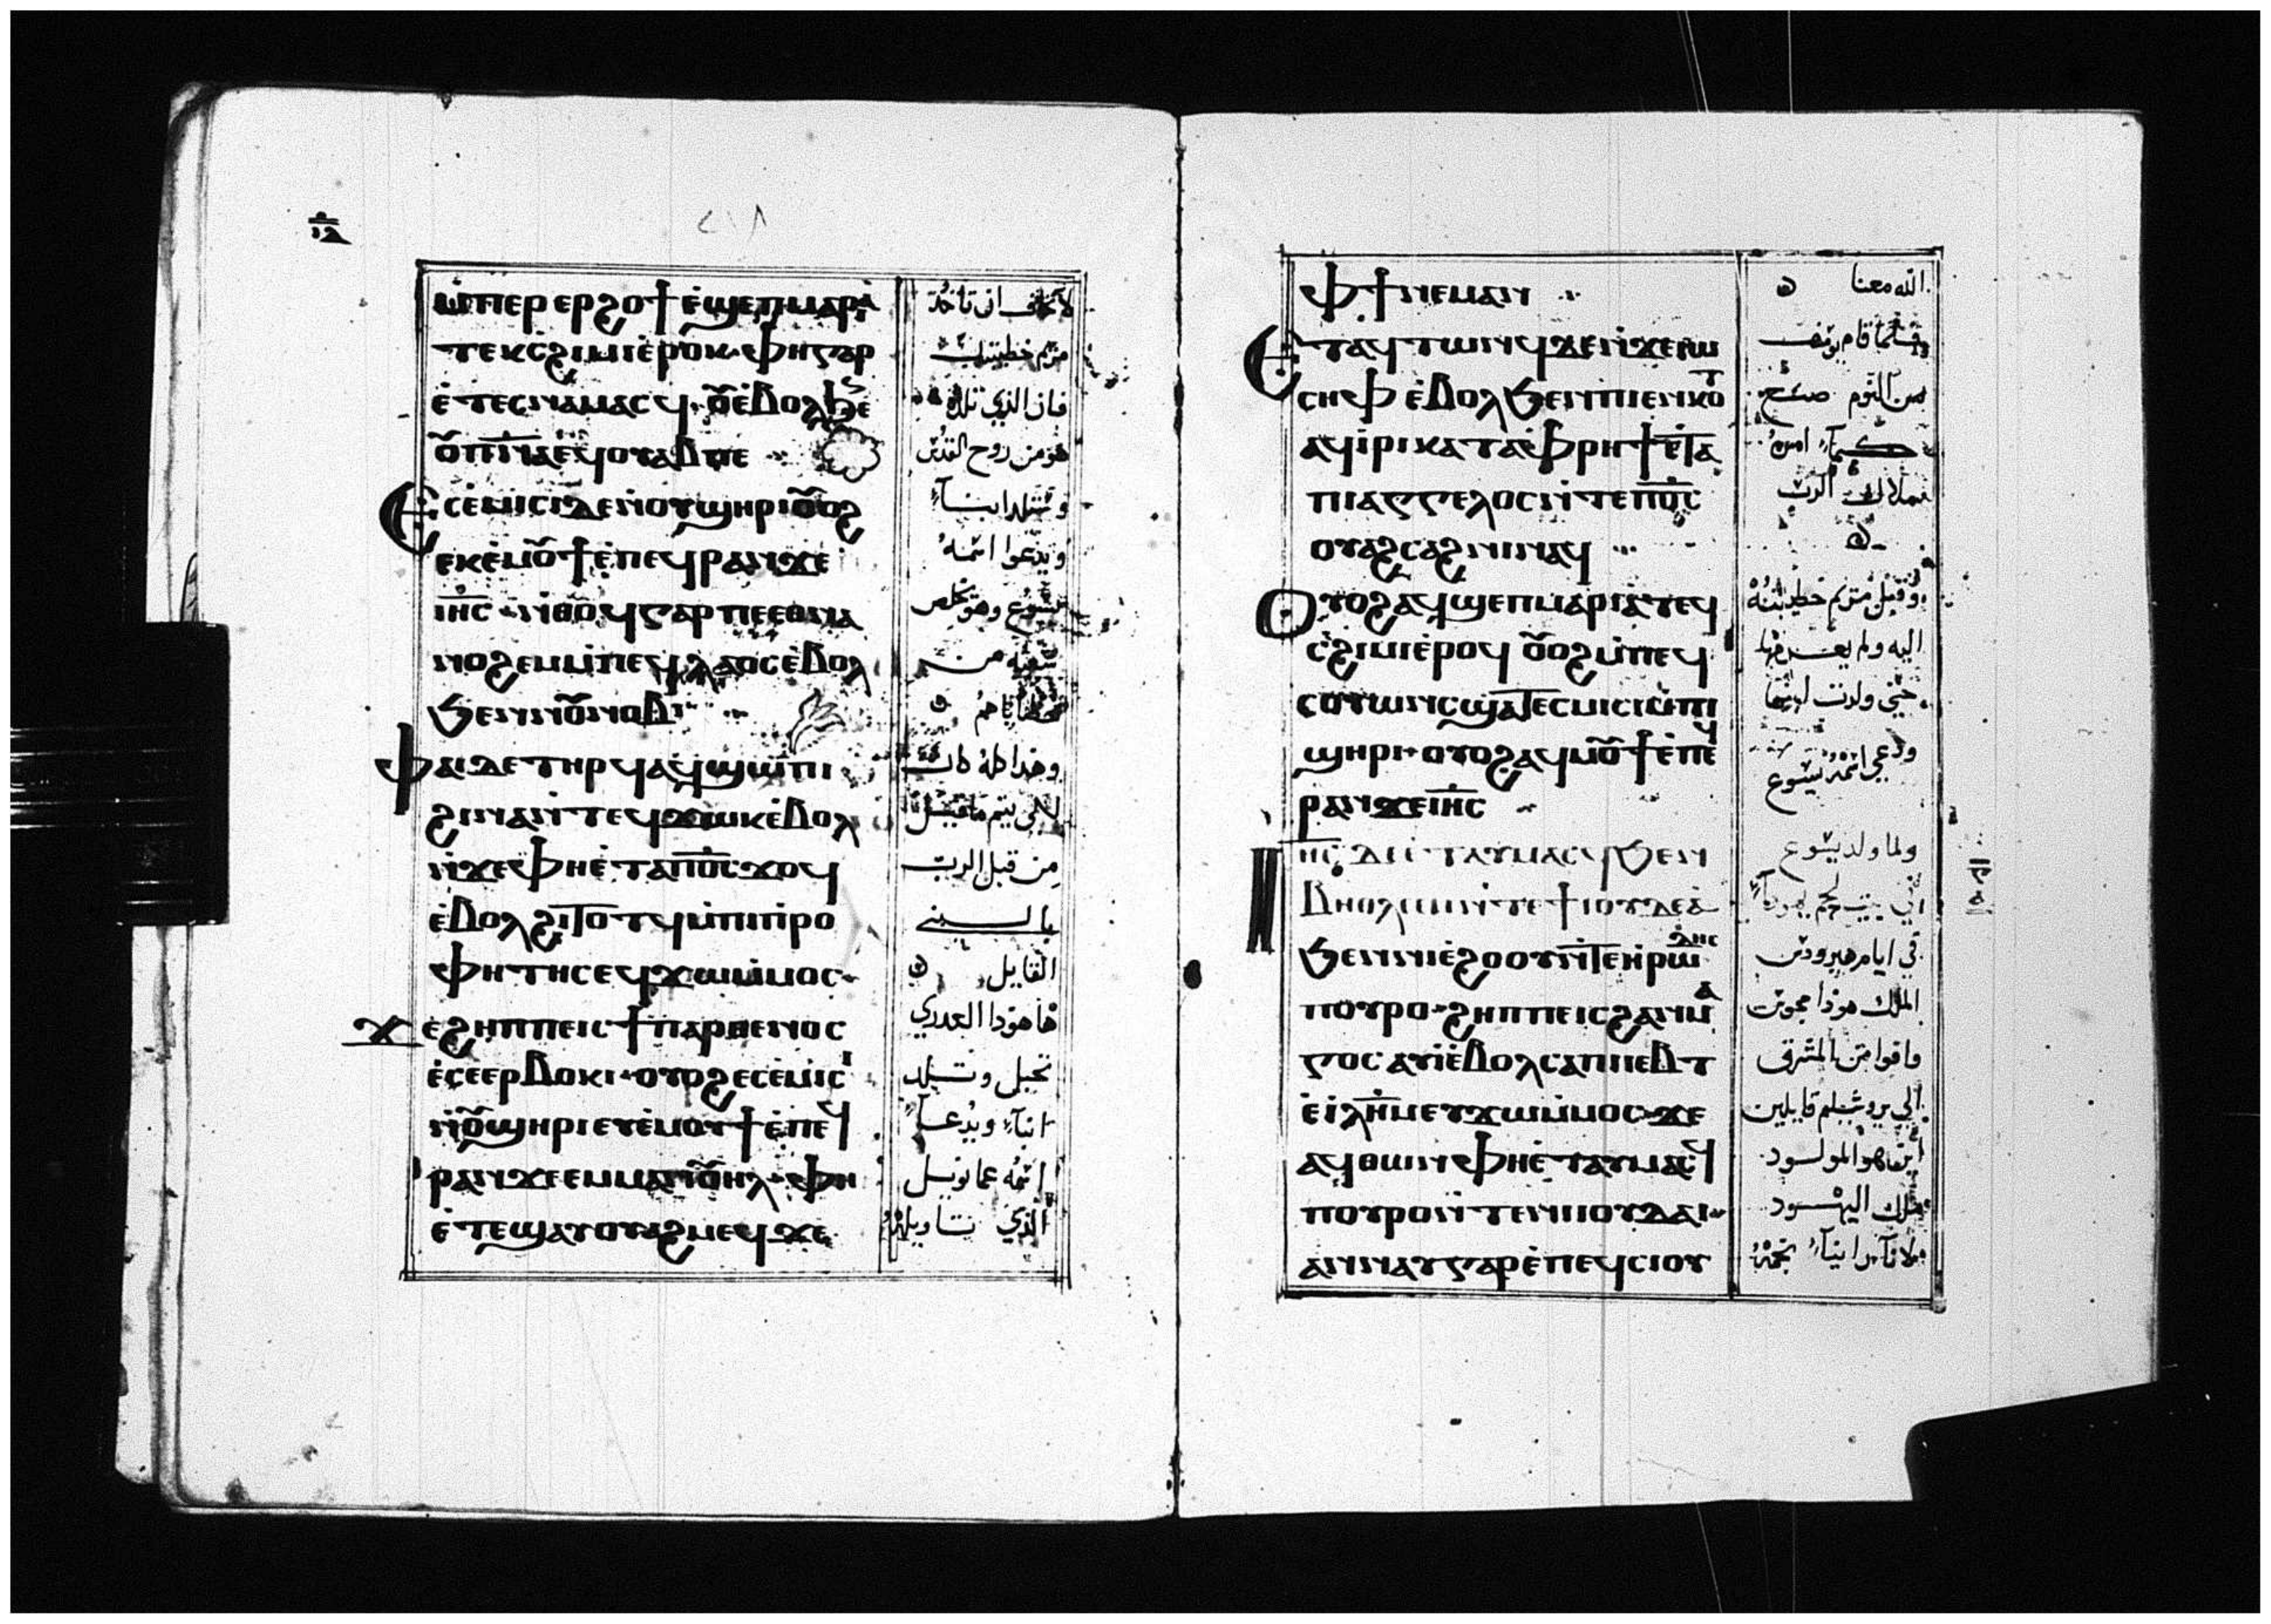 ⲙ̀ⲡⲉⲣ ⲉⲣϩⲟϯ ⲉ̀ϣⲉⲡ ⲙⲁⲣⲓⲁ̀
ⲧⲉⲕⲥ̀ϩⲓⲙⲓ ⲉ̀ⲣⲟⲕ· ⲫⲏ ⲅⲁⲣ
ⲉ̀ⲧⲉⲥⲛⲁⲙⲁⲥϥ·
ⲡ︦ⲛ︦ⲁ︦ ⲉϥⲟⲩⲁⲃ ⲡⲉ
Ⲉⲥⲉ̀ⲙⲓⲥⲓ ⲇⲉ ⲛ̀ⲟⲩϣⲏⲣⲓ ⲟⲩⲟϩ
ⲉⲕⲉ̀ⲙⲟⲩϯ ⲉ̀ⲡⲉϥⲣⲁⲛ ϫⲉ
ⲓ︦ⲏ︦ⲥ︦ · ⲛ̀ⲑⲟϥ ⲅⲁⲣ ⲡⲉⲑⲛⲁ
ⲛⲟϩⲉⲙ ⲙ̀ⲡⲉϥⲗⲁⲟⲥ ⲉ̀ⲃⲟⲗ
ϧⲉⲛ ⲛⲟⲩⲛⲟⲃⲓ
Ⲫⲁⲓ ⲇⲉ ⲧⲏⲣϥ ⲁϥϣⲱⲡⲓ
ϩⲓⲛⲁ ⲛ̀ⲧⲉϥϫⲱⲕ ⲉ̀ⲃⲟⲗ
ⲛ̀ϫⲉ ⲫⲏ ⲉ̀ⲧⲁ ⲡ︦ⲟ︦ⲥ︦ ϫⲟϥ
ⲉ̀ⲃⲟⲗ ϩⲓⲧⲟⲧϥ ⲙ̀ⲡⲓⲡ̀ⲣⲟ
ⲫⲏⲧⲏⲥ ⲉϥϫⲱ ⲙ̀ⲙⲟⲥ·
Ϫⲉ ϩⲏⲡⲡⲉ ⲓⲥ ϯⲡⲁⲣⲑⲉⲛⲟⲥ
ⲉⲥⲉⲉⲣⲃⲟⲕⲓ· ⲟⲩⲟϩ ⲉⲥⲉ̀ⲙⲓⲥⲓ
ⲛ̀ⲟⲩϣⲏⲣⲓ ⲉⲩⲉ̀ⲙⲟⲩϯ ⲉ̀ⲡⲉϥ
ⲣⲁⲛ ϫⲉ ⲉⲙⲙⲁⲛⲟⲩⲏⲗ· ⲫⲏ
ⲉ̀ⲧⲉ ϣⲁⲩⲟⲩⲁϩⲙⲉϥ ϫⲉ
لا تخف ان تاخذ
مريم خطيبتك
فان الذي تلده
هو من روح القدس
وستلد ابنآ
ويدعوا اسمه
يسوع وهو يخلص
شعبه من
خطاياهم
وهذا كله كان
لكي يتم ما قيل
من قبل الرب
بالنبي
القايل
ها هوذا العدري
تحبل وتلد
ابنآ ويدعآ
اسمه عمانويل
الذي تاويله
ⲫϯ ⲛⲉⲙⲁⲛ
Ⲉⲧⲁϥⲧⲱⲛϥ ⲇⲉ ⲛ̀ϫⲉ ⲓⲱ
ⲥⲏⲫ ⲉ̀ⲃⲟⲗ ϧⲉⲛ ⲡⲓⲉⲛⲕⲟⲧ
ⲁϥⲓ̀ⲣⲓ ⲕⲁⲧⲁ ⲫ̀ⲣⲏϯ ⲉ̀ⲧⲁ
ⲡⲓⲁⲅⲅⲉⲗⲟⲥ ⲛ̀ⲧⲉ ⲡ︦ⲟ︦ⲥ︦
ⲟⲩⲁϩⲥⲁϩⲛⲓ ⲛⲁϥ
Ⲟⲩⲟϩ ⲁϥϣⲉⲡ ⲙⲁⲣⲓⲁ ⲧⲉϥ
ⲥ̀ϩⲓⲙⲓ ⲉ̀ⲣⲟϥ ⲟⲩⲟϩ ⲙ̀ⲡⲉϥ
ⲥⲟⲩⲱⲛⲥ ϣⲁⲧⲉⲥⲙⲓⲥⲓ ⲙ̀ⲡⲓ
ϣⲏⲣⲓ· ⲟⲩⲟϩ ⲁϥⲙⲟⲩϯ ⲉ̀ⲡⲉϥ
ⲣⲁⲛ ϫⲉ ⲓ︦ⲏ︦ⲥ︦
Ⲓ︦ⲏ︦ⲥ︦ ⲇⲉ ⲉ̀ⲧⲁⲩⲙⲁⲥϥ ϧⲉⲛ
ⲃⲏⲑⲗⲉⲉⲙ ⲛ̀ⲧⲉ ϯⲓⲟⲩⲇⲉⲁ
ϧⲉⲛ ⲛⲓⲉ̀ϩⲟⲟⲩ ⲛ̀ⲧⲉ ⲏ̀ⲣⲱⲇⲏⲥ
ⲡⲟⲩⲣⲟ· ϩⲏⲡⲡⲉ ⲓⲥ ϩⲁⲛⲙⲁ
ⲅⲟⲥ ⲁⲩⲓ̀ ⲉ̀ⲃⲟⲗ ⲥⲁ ⲡⲉⲓⲉⲃⲧ
ⲉ̀ⲓ̀ⲗ︦ⲏ︦ⲙ︦ ⲉⲩϫⲱ ⲙ̀ⲙⲟⲥ ϫⲉ
ⲁϥⲑⲱⲛ ⲫⲏ ⲉ̀ⲧⲁⲩⲙⲁⲥϥ
ⲡⲟⲩⲣⲟ ⲛ̀ⲧⲉ ⲛⲓⲓⲟⲩⲇⲁⲓ·
ⲁⲛⲛⲁⲩ ⲅⲁⲣ ⲉ̀ⲡⲉϥⲥⲓⲟⲩ
الله معنا
فلما قام يوسف
من النوم صنع
كمآ امره
ملاك الرب
وقبل مريم خطيبته
اليه ولم يعرفها
حتي ولدت ابنها
ودعي اسمه يسوع
ولما ولد يسوع
في بيت لحم يهودآ
في ايام هيرودس
الملك هوذا مجوس
وافوا من المشرق
الي يروشليم قايلين
اين هو المولود
ملك اليهود
لاننآ راينآ نجمه